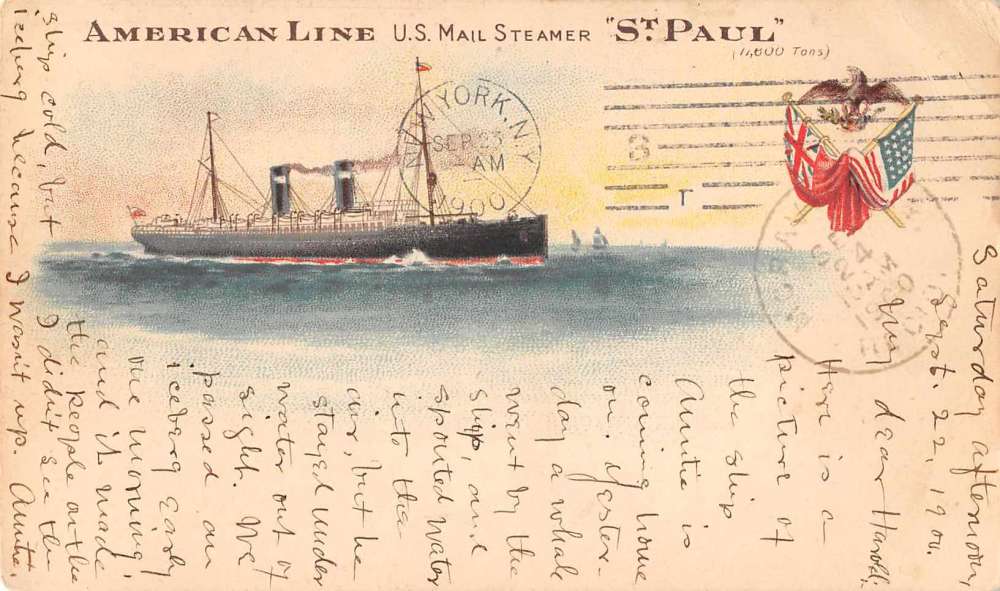 AMERICAN LINE U.S. MAIL STEAMER "ST. PAUL"
(11,600 Tons)
NEW YORK, N.Y.
SEP 23
AM
1900
Saturday afternoon,
Sept. 22, 1900.
My dear Harold:
Here is a
picture of
the ship
Auntie is
coming home
on. Yester-
day a whale
went by the
ship, and
spouted water
into the
air, but he
stayed under
water out of
sight. We
passed an
iceberg early
one morning,
and it made
the people on the
ship cold, but
I didn't see the
iceberg because I wasn't up. Auntie.